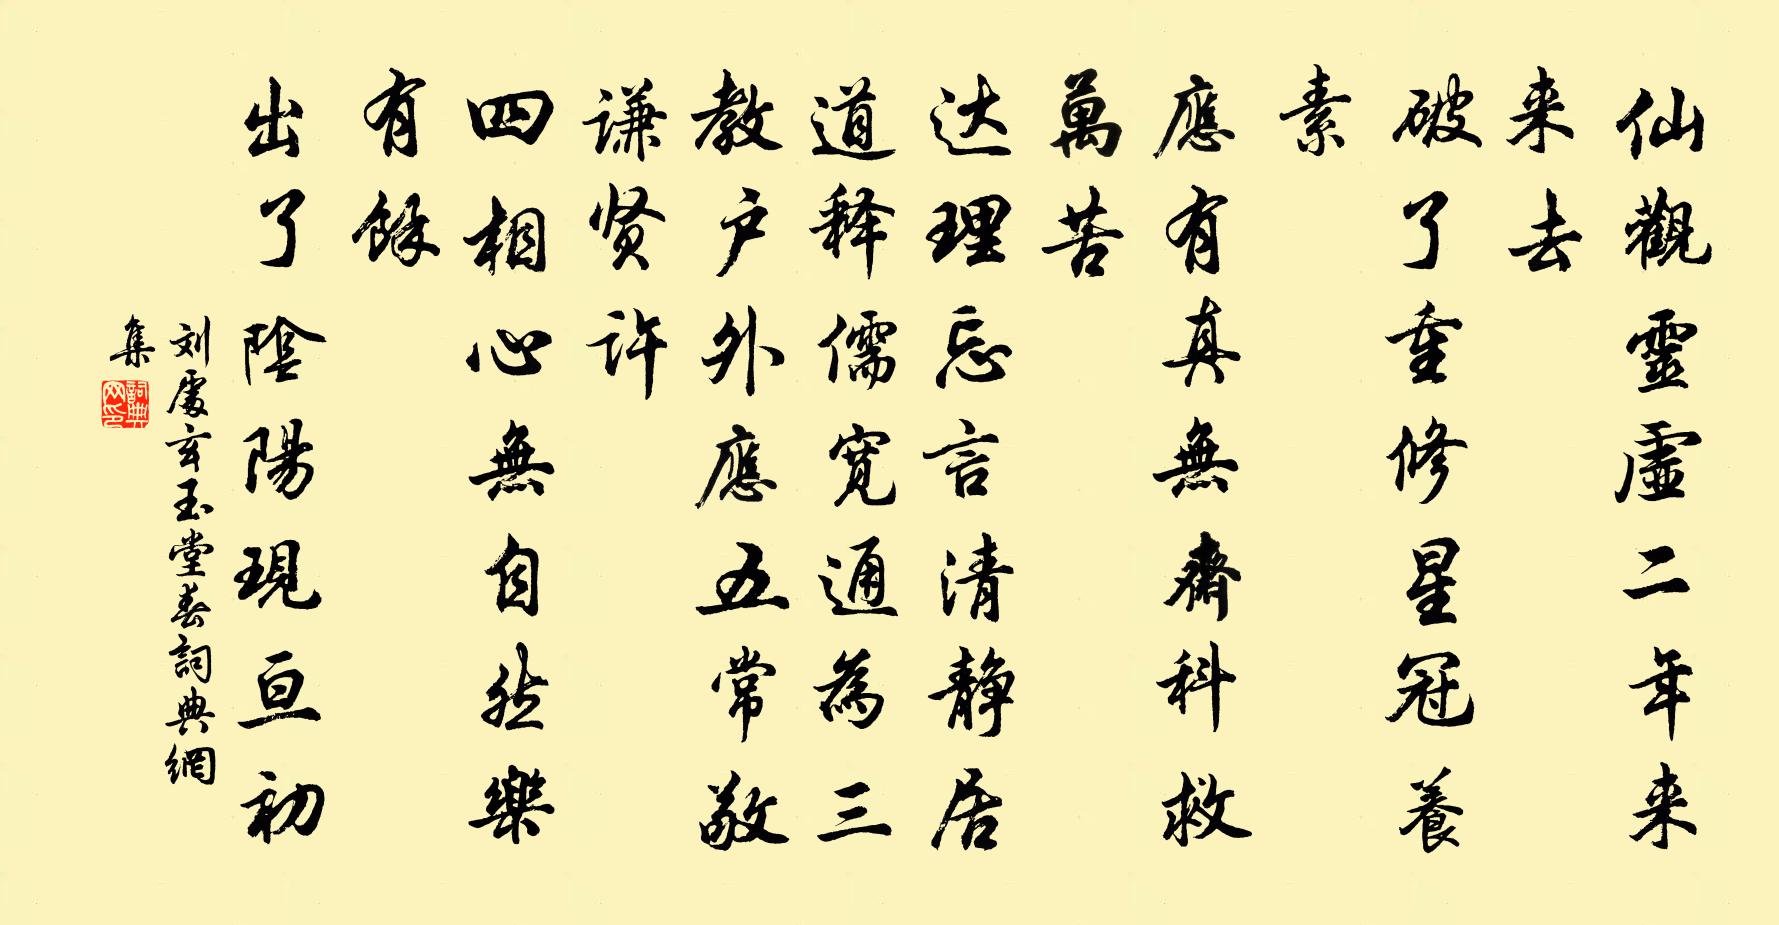 仙觀靈虛二年来
来去
破了重修星冠養
素
應有真無齋科救
萬苦
达理忘言清静居
道释儒寛通為三
教户外應五常敬
谦贤许
四相心無自然樂
有餘
出了陰陽現亘初
刘處玄玉堂春詞典網
集
詞典網印